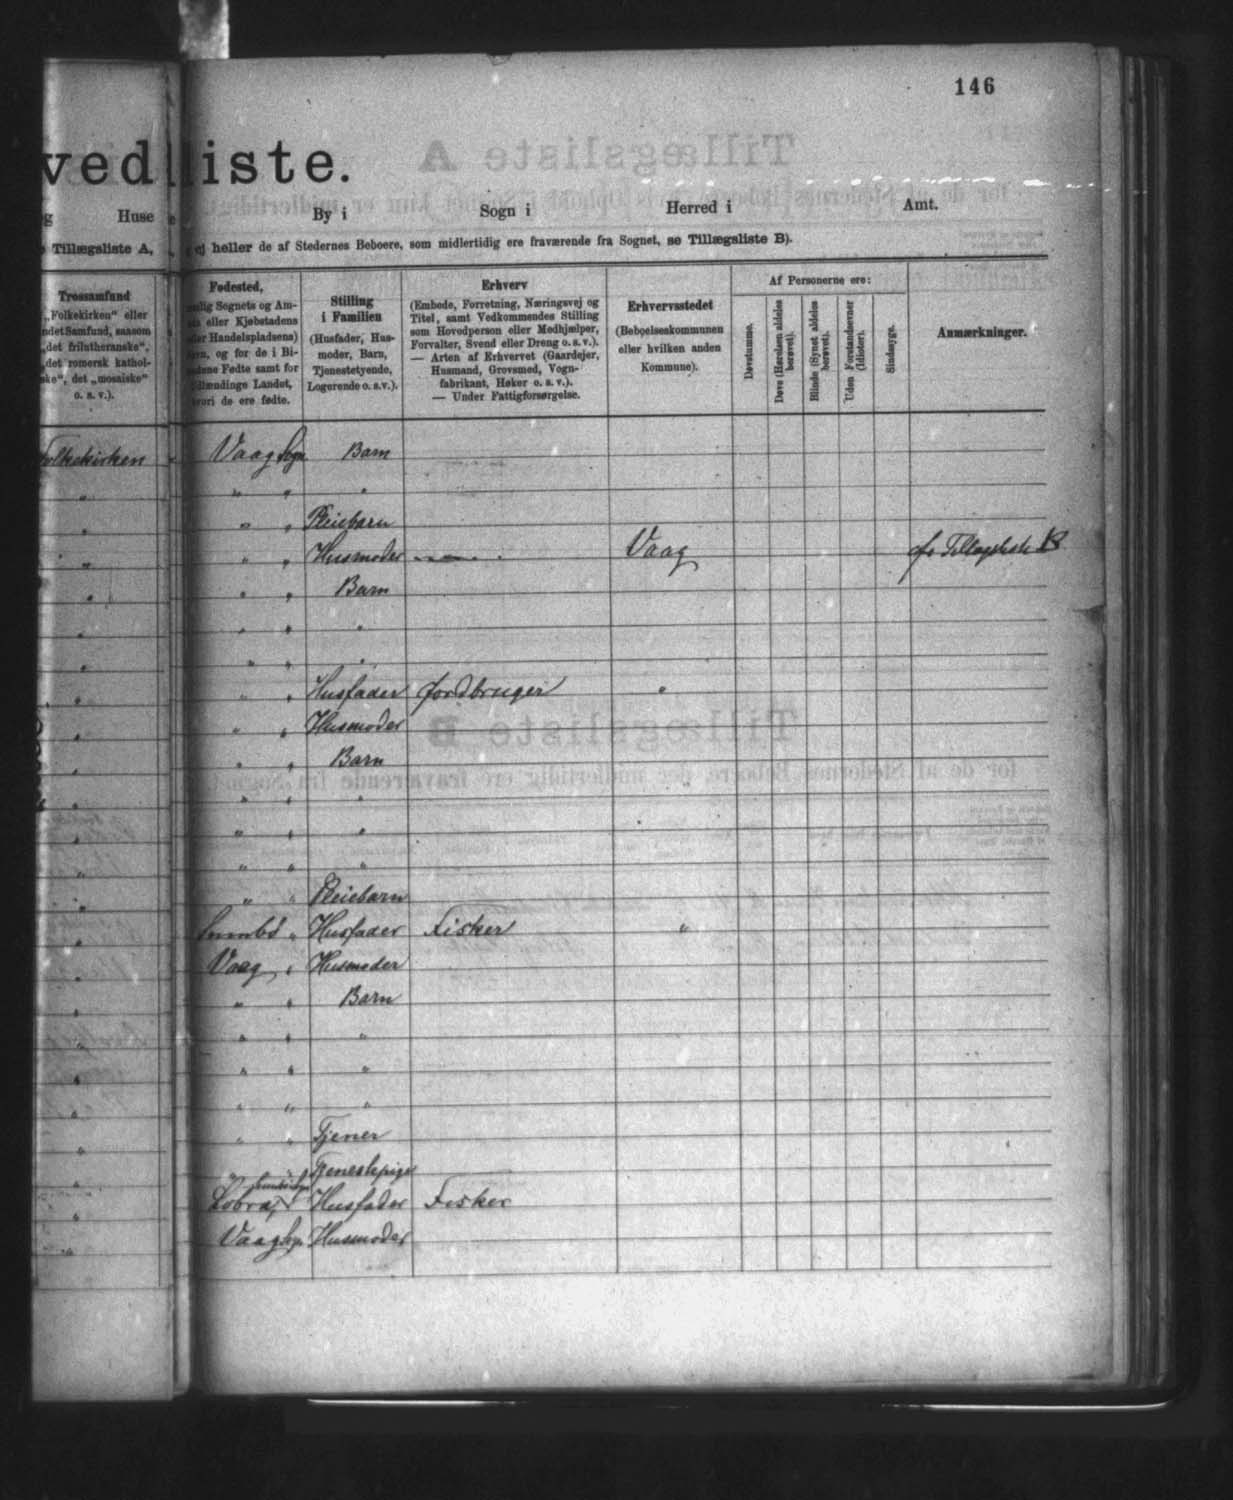 146
vedliste.
g Huse By i Sogn i Herred i Amt.
Tillægsliste A, ej heller de af Stedernes Beboere, som midlertidig ere fraværende fra Sognet, se Tillægsliste B).
Trossamfund
„Folkekirken“ eller
ndet Samfund, saasom
„det frilutheranske“,
„det romersk kathol-
ske“, det „mosaiske“
o. s. v.).
Fødested,
nlig Sognets og Am-
eller Kjøbstadens
ler Handelspladsens)
vn, og for de i Bi-
dene Fødte samt for
dlændinge Landet,
vori de ere fødte.
Stilling
i Familien
(Husfader, Hus-
moder, Barn,
Tjenestetyende,
Logerende o. s. v.).
Erhverv
(Embede, Forretning, Næringsvej og
Titel, samt Vedkommendes Stilling
som Hovedperson eller Medhjælper,
Forvalter, Svend eller Dreng o. s. v.).
— Arten af Erhvervet (Gaardejer,
Husmand, Grovsmed, Vogn-
fabrikant, Høker o. s. v.).
— Under Fattigforsørgelse.
Erhvervsstedet
(Beboelseskommunen
eller hvilken anden
Kommune).
Af Personerne ere:
Døvstumme.
Døve (Hørelsen aldeles
berøvet).
Blinde (Synet aldeles
berøvet).
Uden Forstandsevner
(Idioter).
Sindssyge.
Anmærkninger.
Folkekirken Vaag Sogn Barn
" " " "
" " " Pleiebarn
" " " Husmoder — Vaag fr Tillægsliste B
" " " Barn
" " " "
" " " "
" " " Husfader Jordbruger "
" " " Husmoder
" " " Barn
" " " "
" " " "
" " " "
" " " Pleiebarn
" Sumbø " Husfader Fisker "
" Vaag " Husmoder
" " " Barn
" " " "
" " " "
" " " "
" " " Tjener
" " " Tjenestepige
" Lobra, Sumbø Sogn Husfader Fisker
" Vaag Sogn Husmoder